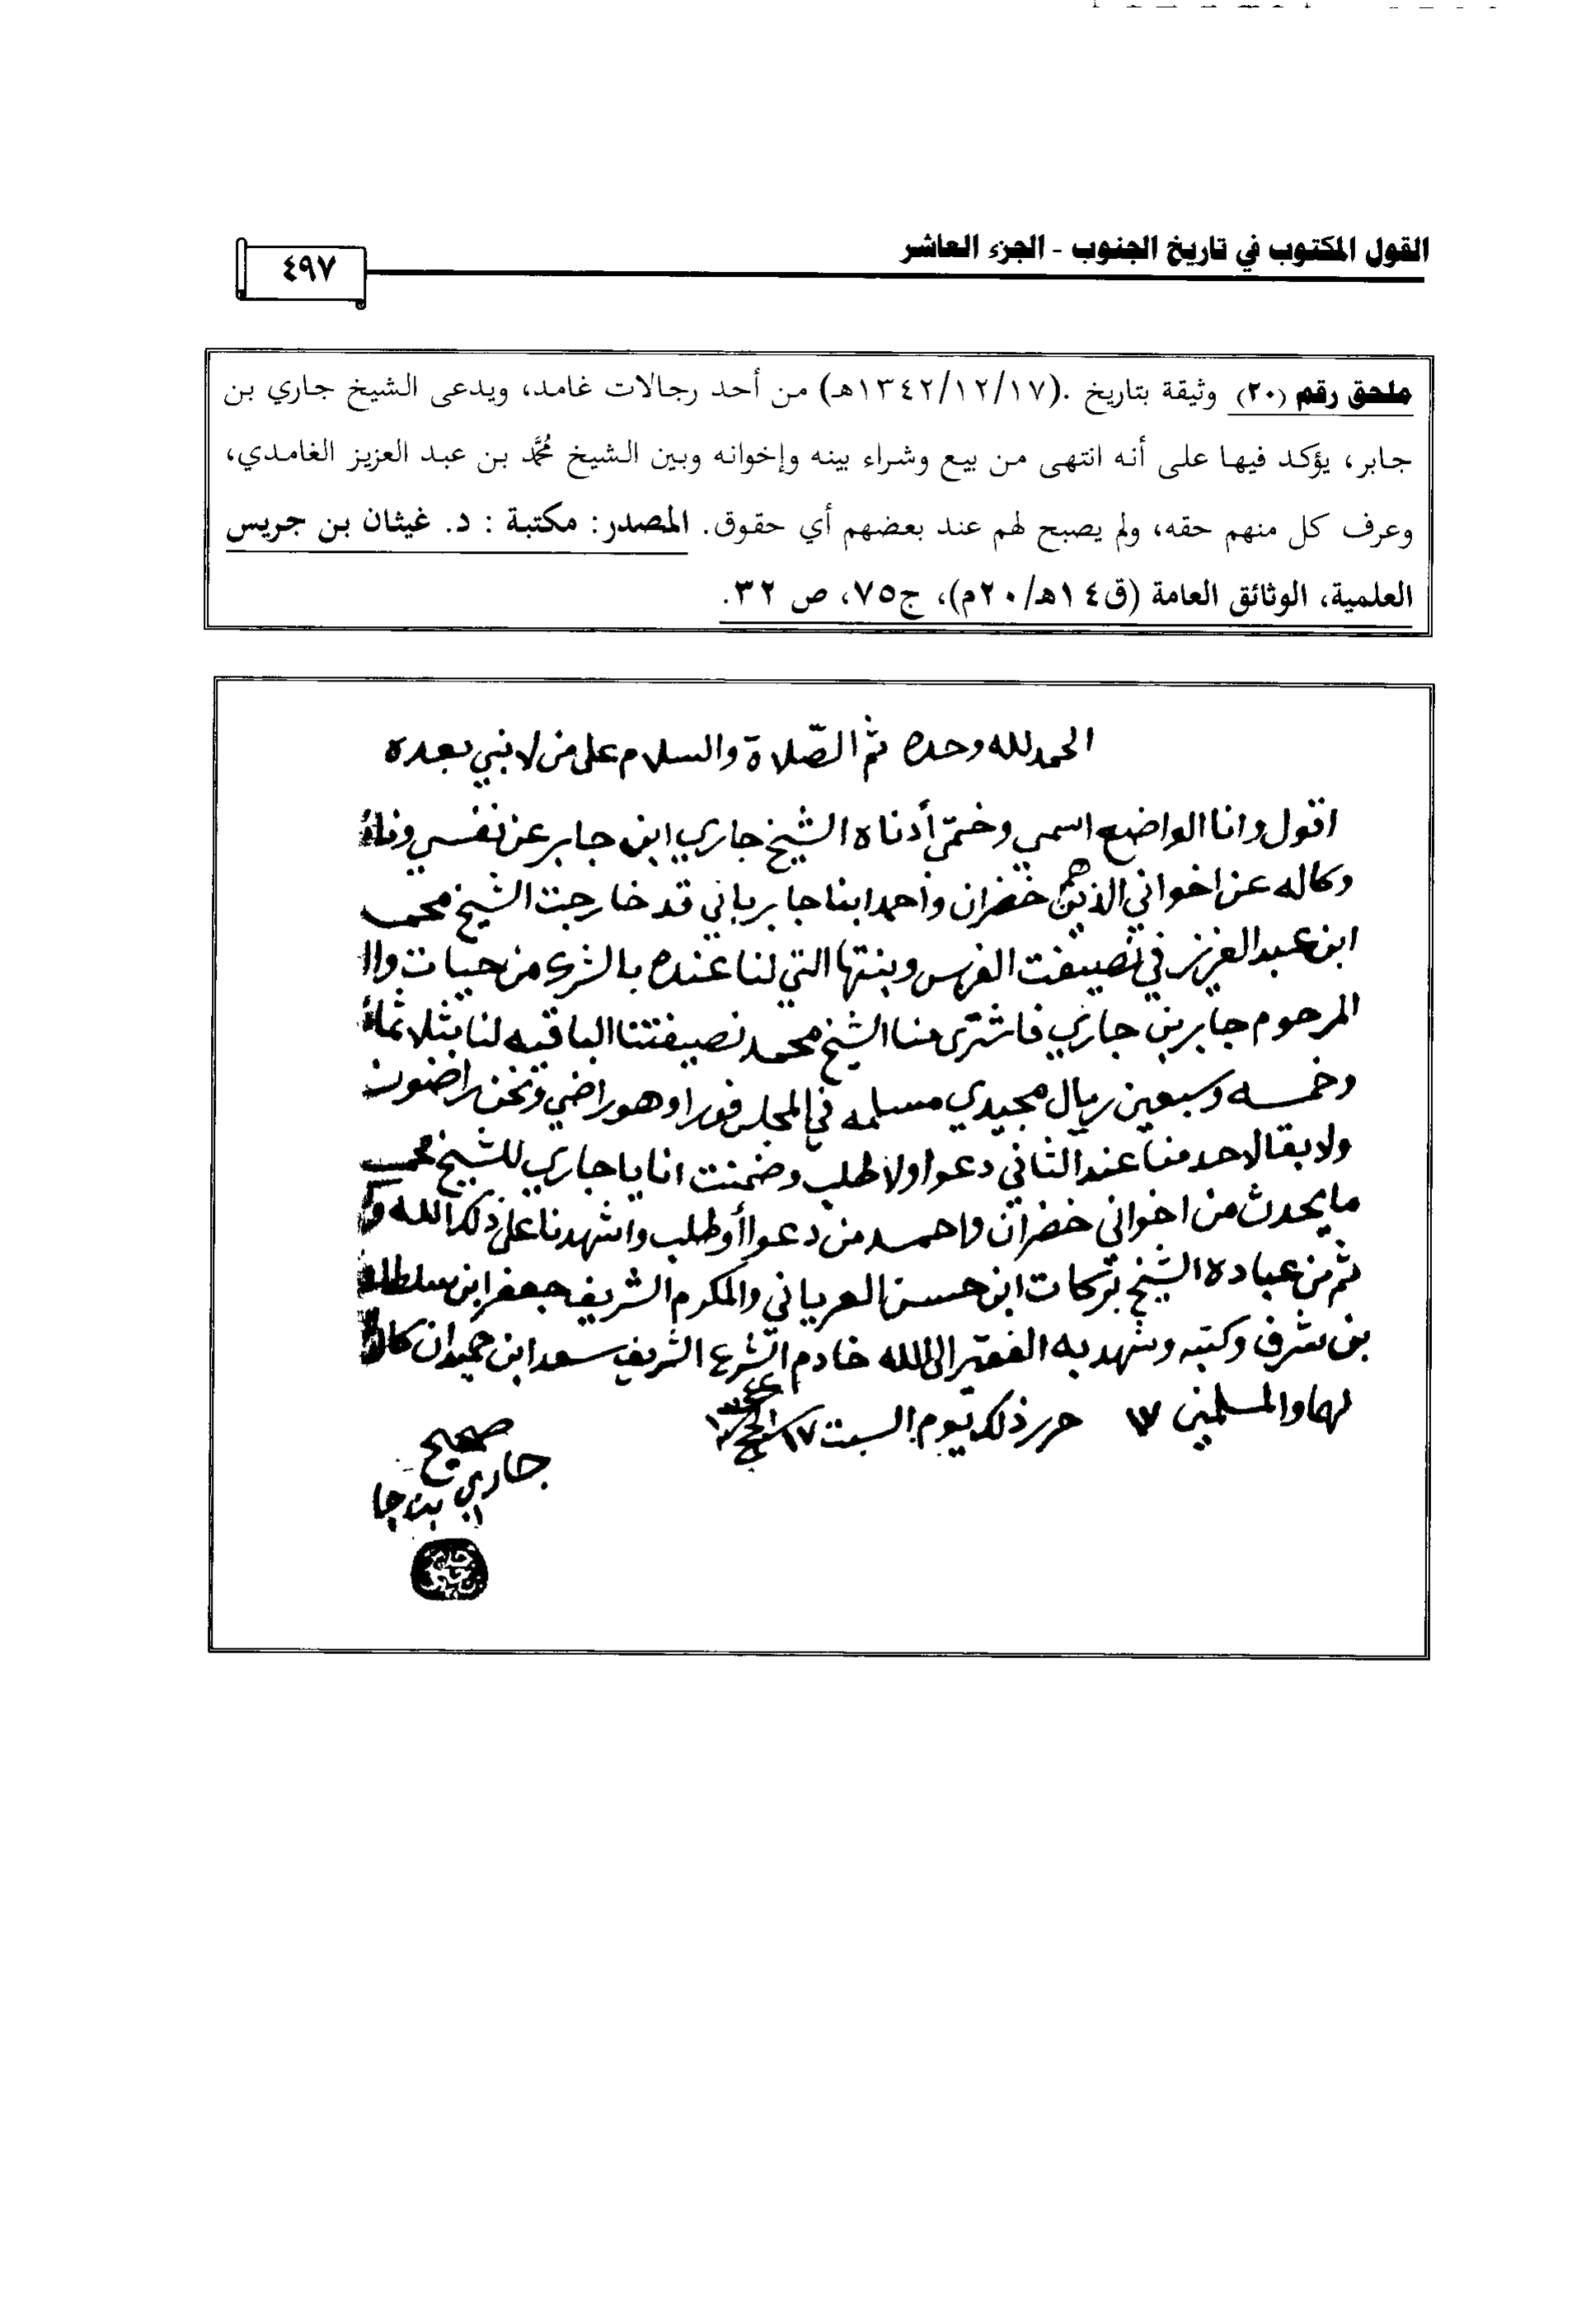 القول المكتوب في تاريخ الجنوب - الجزء العاشر
٤٩٧
ملحق رقم (٢٠) وثيقة بتاريخ .(١٣٤٢/١٢/١٧هـ) من أحد رجالات غامد، ويدعى الشيخ جاري بن
جابر، يؤكد فيها على أنه انتهى من بيع وشراء بينه وإخوانه وبين الشيخ محمَّد بن عبد العزيز الغامدي،
وعرف كل منهم حقه، ولم يصبح لهم عند بعضهم أي حقوق. المصدر: مكتبة : د. غيثان بن جريس
العلمية، الوثائق العامة (ق١٤هـ/٢٠م)، ج٧٥، ص ٣٢.
الحمد لله وحده ثم الصّلاة والسلام على من لا نبي بعده
اقول وانا الواضع اسمي وختمي أدناه الشيخ جاري ابن جابر عن نفسي
وكاله عن اخواني الذين هم خضران واحمد ابنا جابر باني قد خارجت الشيخ محمد
ابن عبد العزيز في نصيفت الفرس وبنتها التي لنا عنده بالشرك من حيات
المرحوم جابر بن جاري فاشترى منا الشيخ محمد نصيفتنا الباقيه لنا بثلاثماء
وخمسه وسبعين ريال مجيدي مسلمه في المجلس فورا وهو راضي ونحن راضون
ولا بقا لاحد منا عند الثاني دعوا ولا طلب وضمنت انا يا جاري للشيخ محمد
ما يحدث من اخواني خضران واحمد من دعوا أو طلب واشهدنا على ذلك الله
ثم من عباده الشيخ بركات ابن حسن العرياني والمكرم الشريف جعفر ابن سلطان
بن شرف وكتبه وشهد به الفقير الى الله خادم الشرع الشريف سعد ابن حميدان كان
لهما والمسلمين حرر ذلك يوم السبت ١٧
صحيح
جاري بن جا